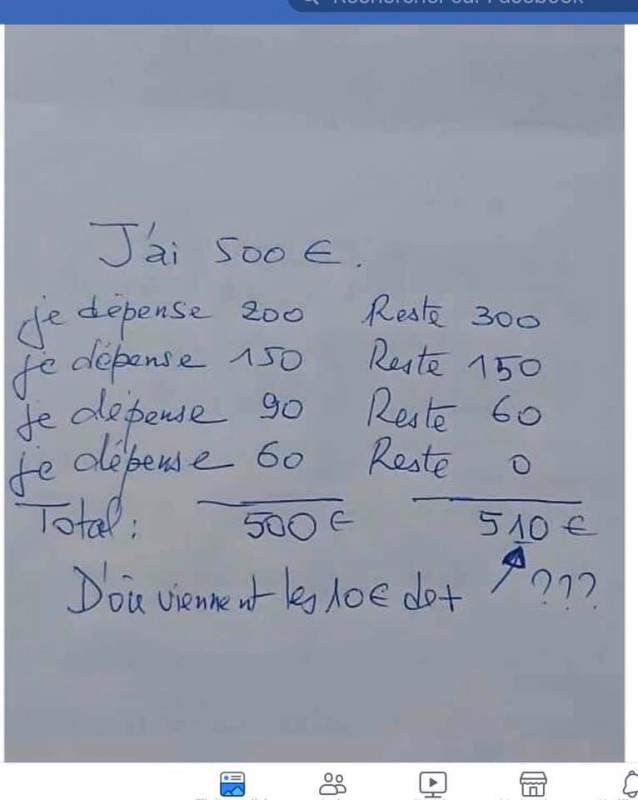 Rechercher sur Facebook
J'ai 500 €.
je dépense 200 Reste 300
je dépense 150 Reste 150
je dépense 90 Reste 60
je dépense 60 Reste 0
Total: 500 € 510 €
D'où viennent les 10€ de+ ???